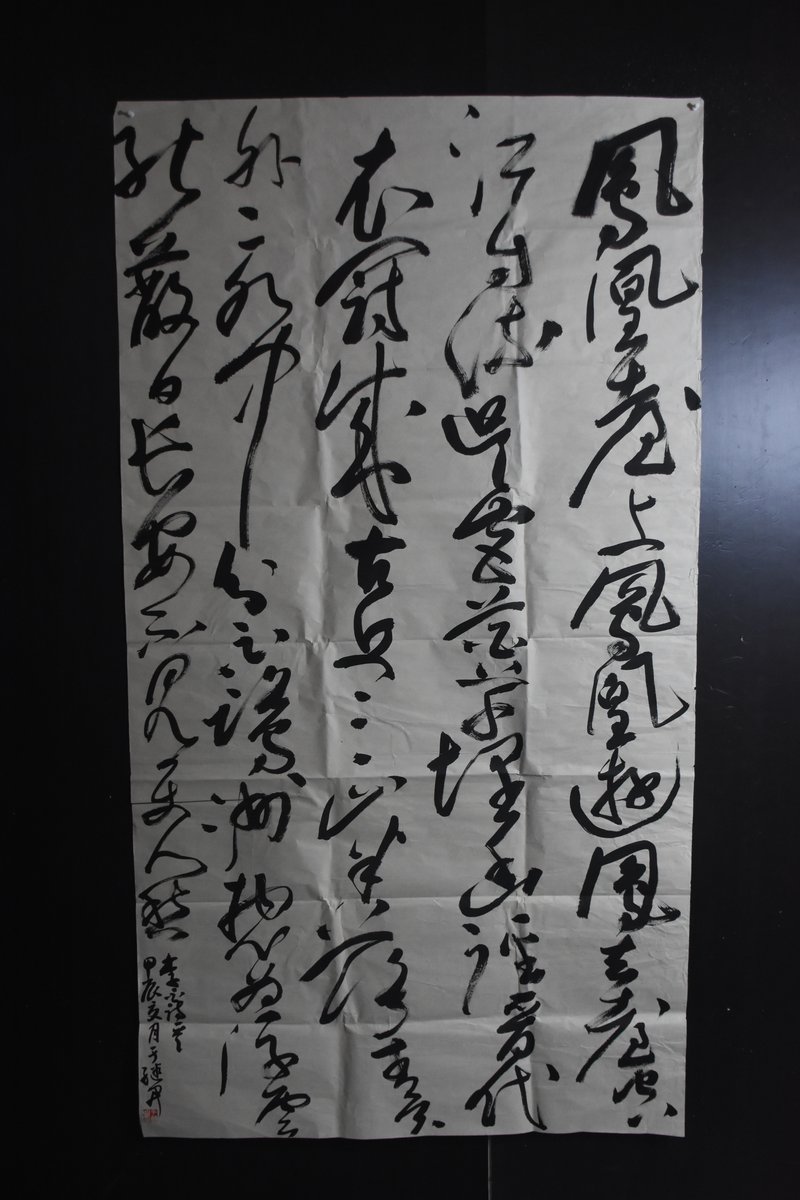 鳳凰臺上鳳凰遊鳳去臺空
江自流吳宮花草埋幽徑晉代
衣冠成古丘三山半落青天
外二水中分白鷺洲揔為浮雲
能蔽日長安不見使人愁
李白詩
甲辰亥月